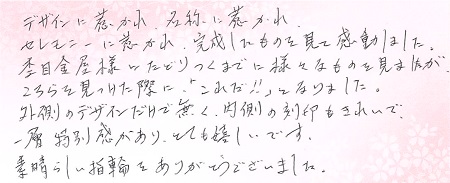 デザインに惹かれ、名称に惹かれ、
セレモニーに惹かれ、完成したものを見て感動しました。
杢目金屋様にたどりつくまでに様々なものを見ましたが、
こちらを見つけた際に、「これだ!!」となりました。
外側のデザインだけで無く、内側の刻印もきれいで、
一層特別感があり、とても嬉しいです。
素晴らしい指輪をありがとうございました。